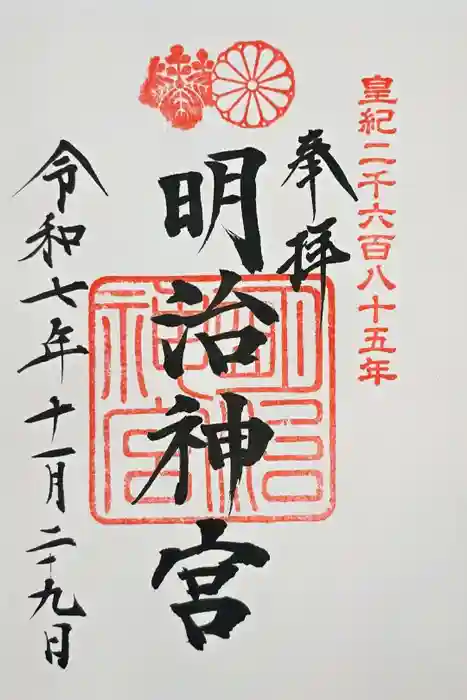 皇紀二千六百八十五年
奉拝
明治神宮
明治神宮
令和七年十一月二十九日